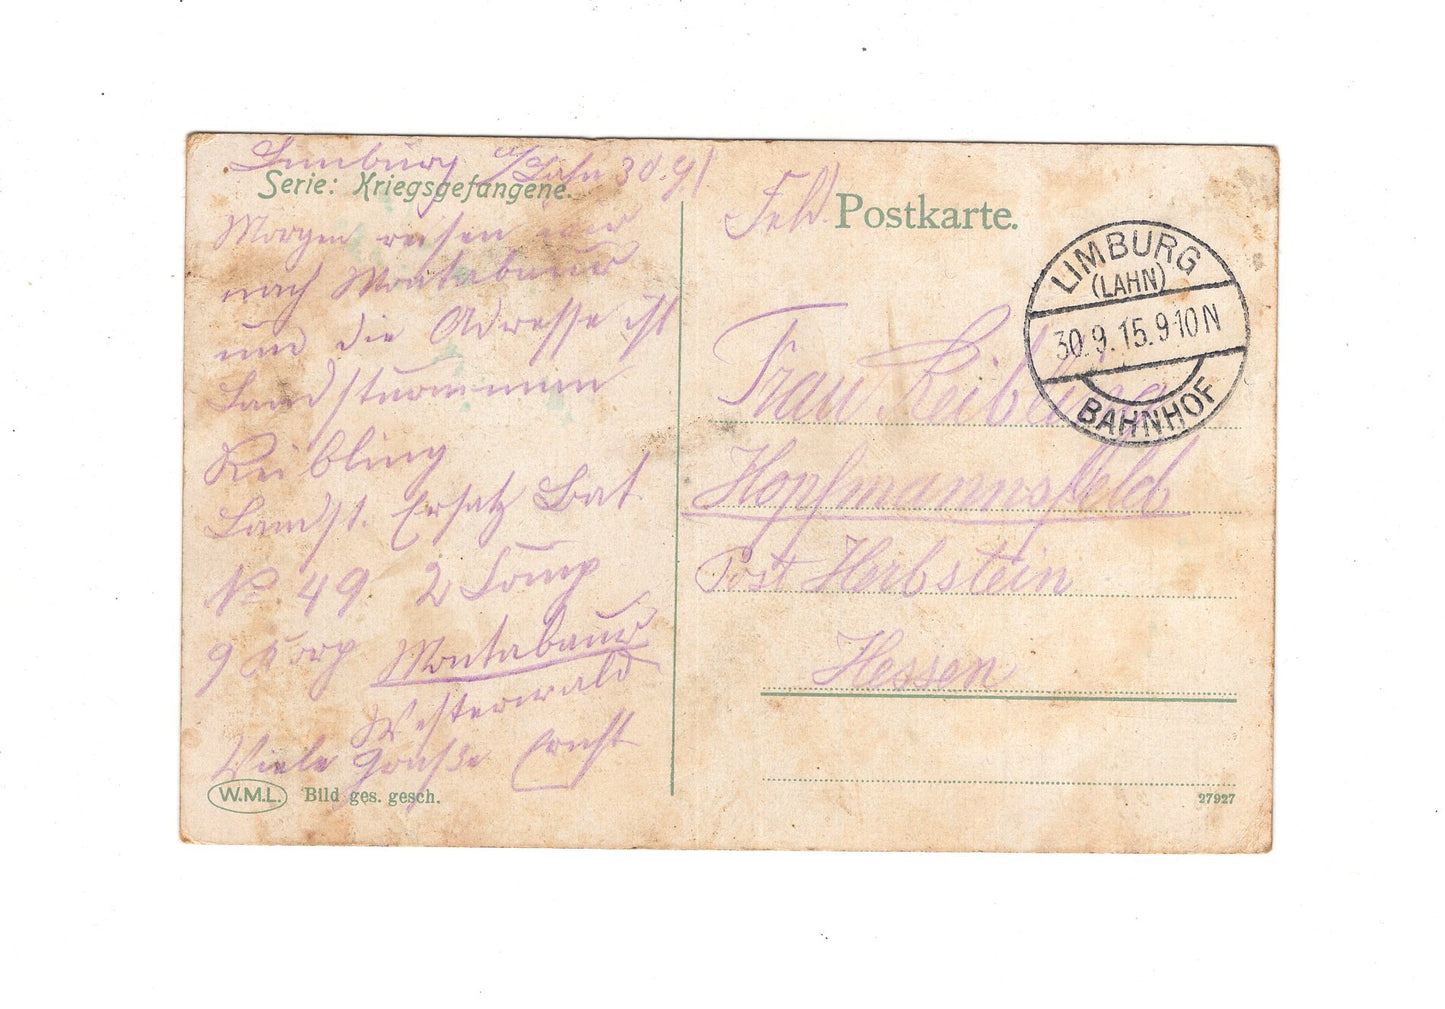 Limburg a/Lahn 30.9.
Serie: Kriegsgefangene.
Morgen reisen wir
nach Montabaur
und die Adresse ist
Landsturmmann
Reibling
Landst. Ersatz Bat
No 49 2 Comp
9 Korp Montabaur
Westerwald
Viele Grüße
W.M.L. Bild ges. gesch.
Feld Postkarte.
LIMBURG
(LAHN)
30.9.15.9-10N
BAHNHOF
Frau Reibling
Hopfmannsfeld
Post Herbstein
Hessen
27927